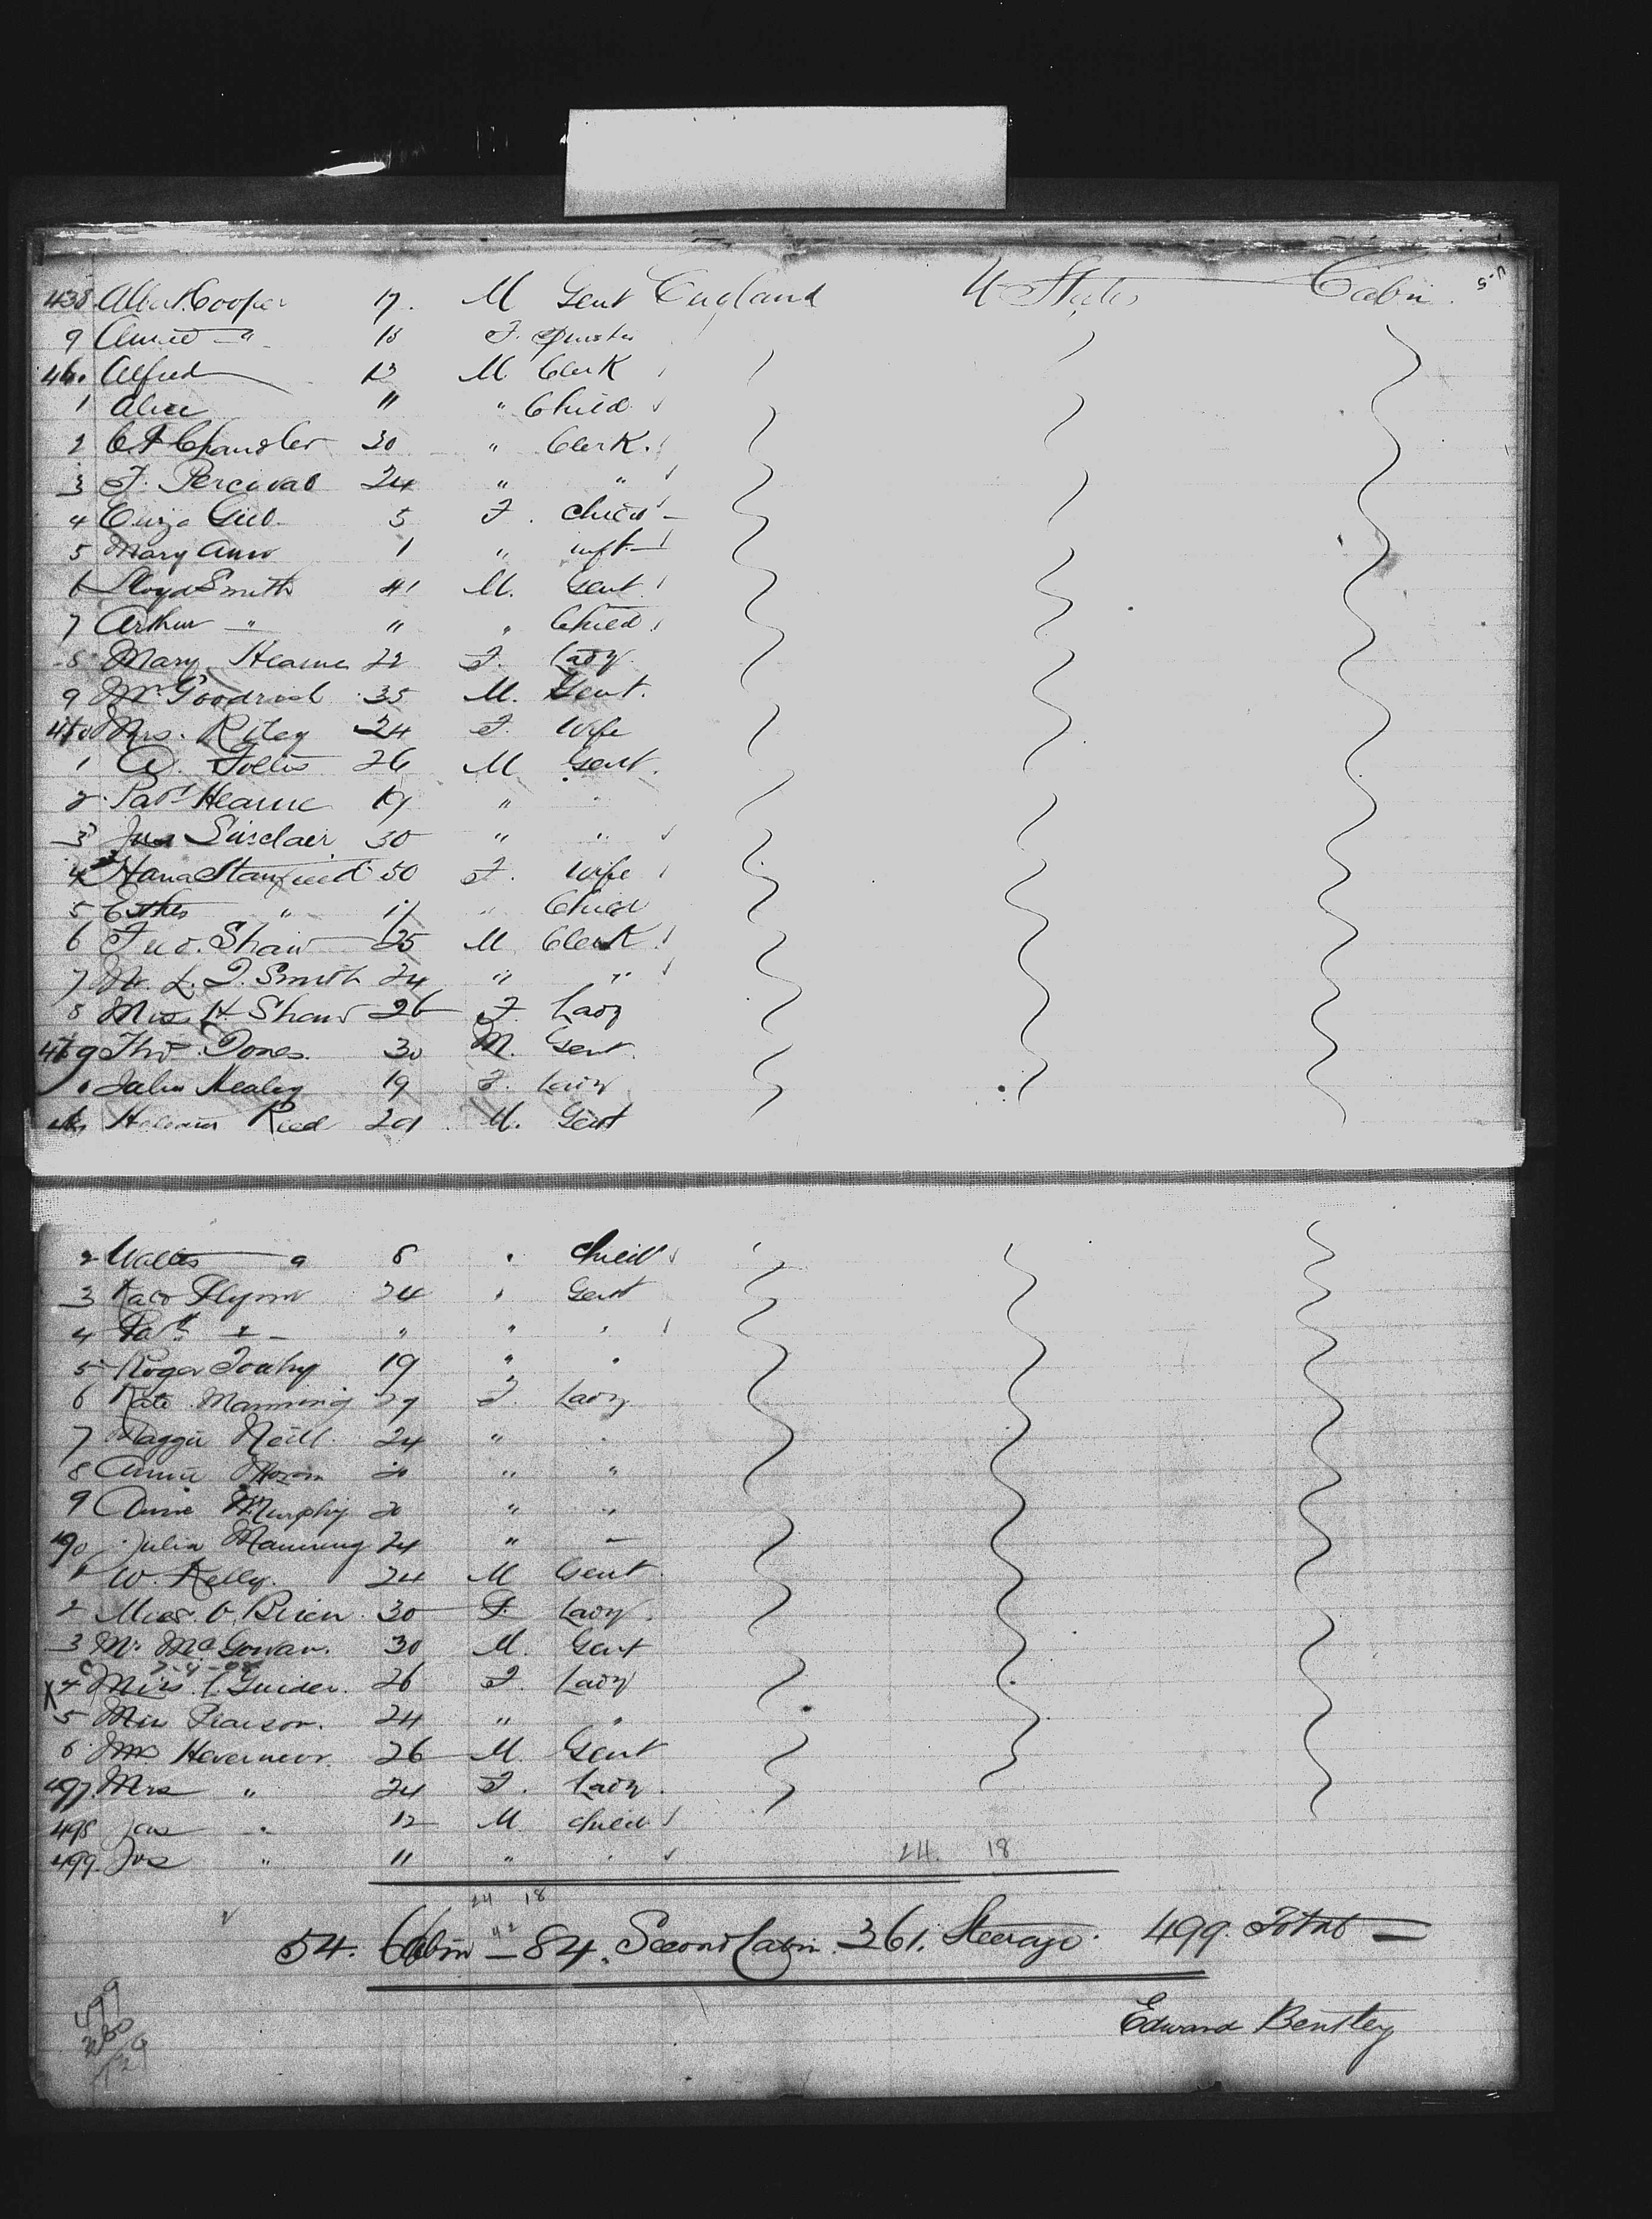 438 Albert Cooper 17. M Gent England U States Cabin.
9 Annie — " 18 F. Spinster
Alfred 13 M. Clerk
1 Alice 11 " Child
2 Chandler 30 " Clerk.
3 F. Percival 24 " "
4 Eliza 5 F. Child
5 Mary Ann 1 " inft.
6 Lloyd Smith 41 M. Gent
7 Arthur — " 11 " Child
8 Mary Hearne 22 F. Lady
9 Mr Goodrich 35 M. Gent.
Mrs. Riley 24 F. Wife
1 26 M Gent.
2 Patk Hearne 19 "
3 Sinclair 30 " "
4 Hana Stanfield 50 F. Wife
5 Esther " 11 " Child
6 Shaw 25 M Clerk
7 Smith 24 " "
8 H Shaw 26 F. Lady
9 Thos Jones. 30 M. Gent
0 Healey 19 F. Lady
Reed 29 M. Gent
2 Walter — " 8 " Child
3 Flynn 24 " Gent
4 Patk " — " " "
5 Roger Touhy 19 " "
6 Kate Manning 29 F. Lady
7 Maggie Neill. 24 " "
8 Annie 20 " "
9 Annie Murphy 20 " "
90 Julia Manning 24 " —
1 W. Kelly. 24 M Gent
2 O. Brien 30 F. Lady.
3 Mr McGowan. 30 M. Gent
X 4 Miss Guider. 26 F. Lady
5 Pearson. 24 " "
6 26 M. Gent
497 Mrs " 24 F. Lady.
498 Jas " 12 M Child
499 Jos " 11 " " 24. 18
24 18
42
54. Cabin — 84. Second Cabin. 361. Steerage. 499. Total —
Edward Bentley
499